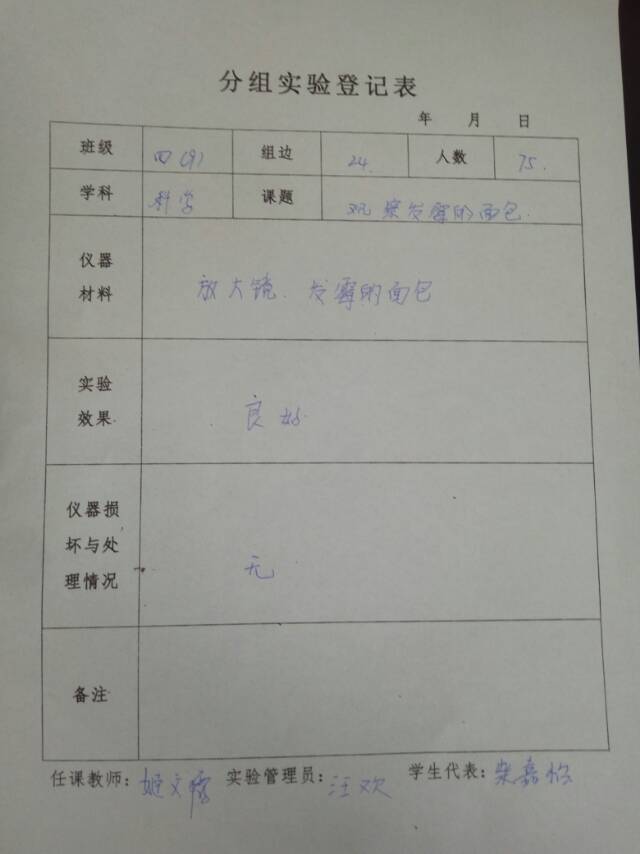 分组实验登记表
年 月 日
班级 四(9) 组边 24. 人数 75.
学科 科学 课题 观察发霉的面包.
仪器
材料
放大镜、发霉的面包
实验
效果
良好.
仪器损
坏与处
理情况
无
备注
任课教师: 姬文 实验管理员: 汪欢 学生代表: 柴嘉怡